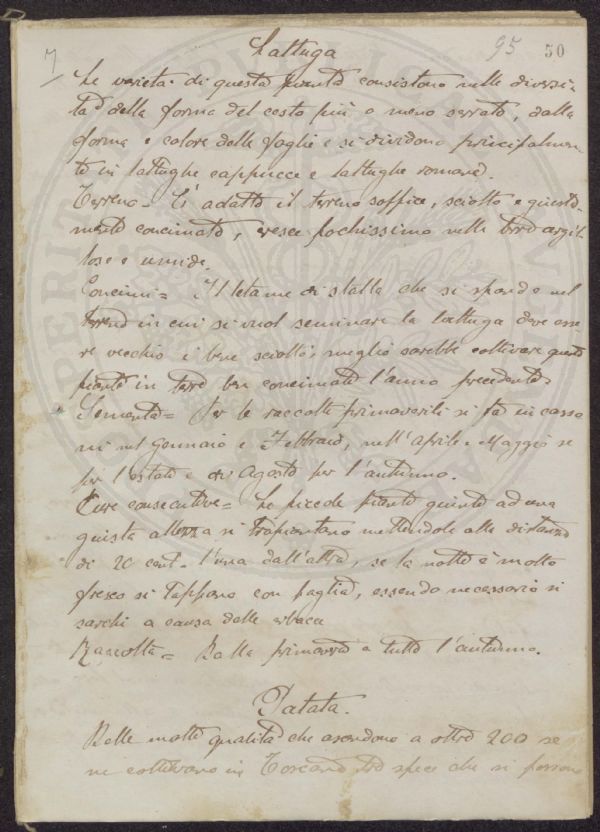 7 95 50
Lattuga
Le varietà di questa pianta consistono nelle diversi-
tà della forma del cesto più o meno serrato, dalla
forma e colore delle foglie e si dividono principalmen-
te in lattughe cappucce e lattughe romane.
Terreno = È adatto il terreno soffice, sciolto e giusta-
mente concimato, cresce pochissimo nelle terre argil-
lose e umide.
Concimi = Il letame di stalla che si spande nel
terreno in cui si vuol seminare la lattuga deve esse-
re vecchio e bene sciolto, meglio sarebbe coltivare queste
piante in terre ben concimate l'anno precedente.
Sementa = Per le raccolte primaverili si fa in casso
ni nel Gennaio e Febbraio, nell'aprile e Maggio se
per l'estate e di Agosto per l'autunno.
Cure consecutive = Le piccole piante giunte ad una
giusta altezza si trapiantano mettendole alla distanza
di 20 cent. l'una dall'altra, se la notte è molto
fresca si tappano con paglia, essendo necessario si
sarchi a causa delle erbacce
Raccolta = Dalla primavera a tutto l'autunno.
Patata.
Delle molte qualità che ascendono a oltre 200 se
ne coltivano in Toscana tre speci che si possono
REPUBLICA PERIT